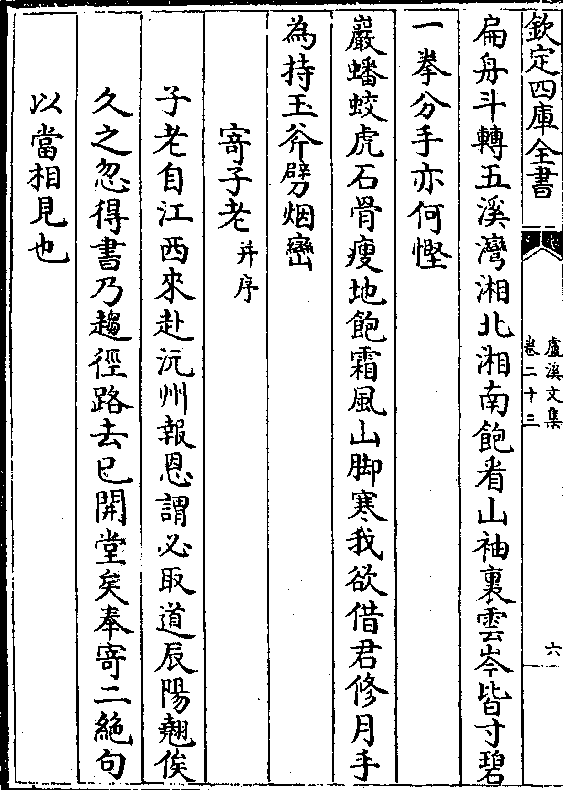 欽定四庫全書
盧溪文集
卷二十三
六
扁舟斗轉五溪灣湘北湘南飽看山袖裏雲岑皆寸碧
一拳分手亦何慳
巖蟠蛟虎石骨瘦地飽霜風山脚寒我欲借君修月手
為持玉斧劈烟巒
寄子老并序
子老自江西來赴沅州報恩謂必取道辰陽翹俟
久之忽得書乃趨徑路去已開堂矣奉寄二絶句
以當相見也